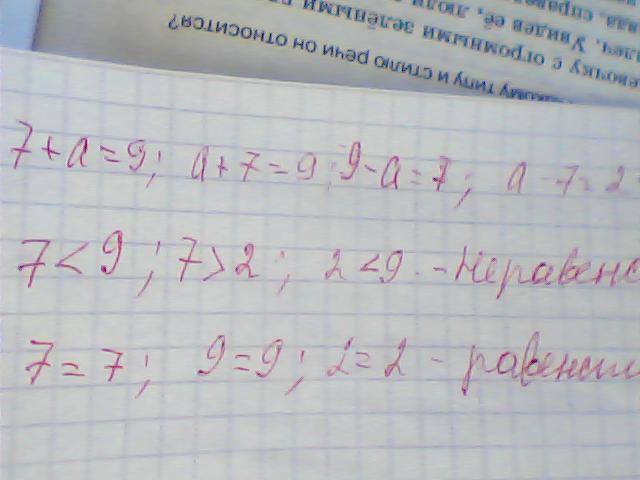 кому типу и стилю речи он относится?
с огромными зелёными
Увидев её, люди
7 + a = 9; a + 7 = 9; 9 - a = 7; a - 7 = 2
7 < 9; 7 > 2; 2 < 9. - Неравенс
7 = 7; 9 = 9; 2 = 2 - равенств